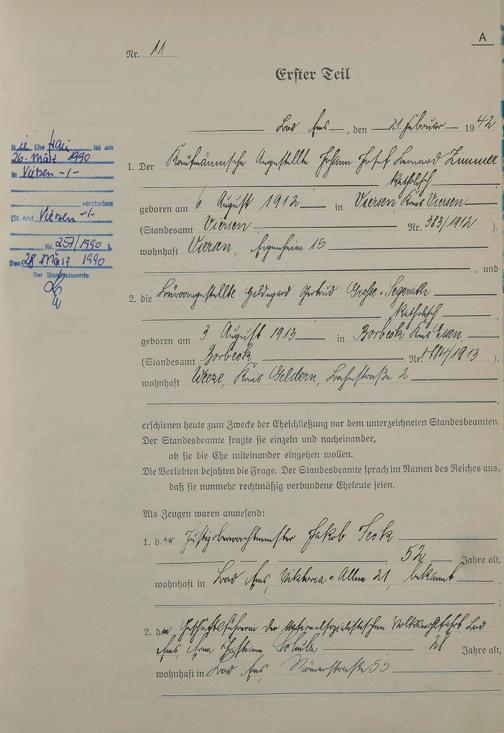 A
Nr. 11
Erster Teil
Bad Ems, den 21. Februar 1942
Die Ehe Frau ist am
26. März 1990
in Viersen -/-
verstorben
(St. Amt Viersen -/-
Nr. 257/1990 ).
Den 28. März 1990
Der Standesbeamte
1. Der Kaufmännische Angestellte Johann Josef
katholisch
geboren am 6. August 1912 in Viersen, Kreis Viersen
(Standesamt Viersen Nr. 383/1912 ).
wohnhaft Viersen, Eigenheim 15
, und
2. die Büroangestellte Hildegard Gertrud Große-Segerath
katholisch
geboren am 3. August 1913 in Borbeck, Kreis Essen
(Standesamt Borbeck Nr. 1484/1913 ).
wohnhaft Weeze, Kreis Geldern, Bahnstraße 2
erschienen heute zum Zwecke der Eheschließung vor dem unterzeichneten Standesbeamten.
Der Standesbeamte fragte sie einzeln und nacheinander,
ob sie die Ehe miteinander eingehen wollen.
Die Verlobten bejahten die Frage. Der Standesbeamte sprach im Namen des Reiches aus,
daß sie nunmehr rechtmäßig verbundene Eheleute seien.
Als Zeugen waren anwesend:
1. der Justizoberwachtmeister Jakob
52 Jahre alt,
wohnhaft in Bad Ems, Viktoria-Allee 21, bekannt
2. der Geschäftsführerin der Nationalsozialistischen Volkswohlfahrt Bad
Ems, Schulz 21 Jahre alt,
wohnhaft in Bad Ems, Römerstraße 55